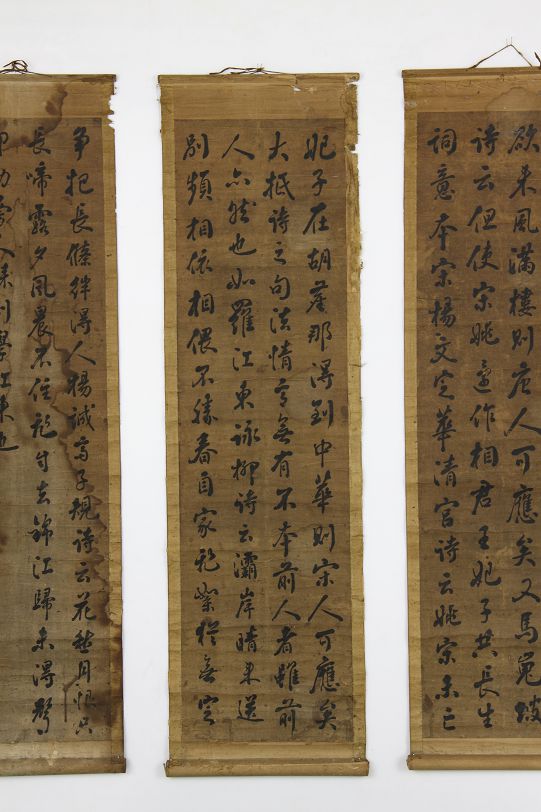 欲来風滿樓則唐人可應矣又馬嵬坡
诗云但使宋姚還作相君王妃子共長生
詞意本宋楊文定華清宫诗云姚宋未亡
妃子在胡塵那得到中華則宋人可應矣
大抵诗之句法情意無有不本前人者雖前
人亦然也如羅江東詠柳诗云灞岸晴来送
別頻相依相偎不勝春自家飛絮猶無定
争把長條絆得人楊誠齋子規诗云花愁月恨只
長啼露夕風晨不住飛自去錦江歸未得
入来則學江東也